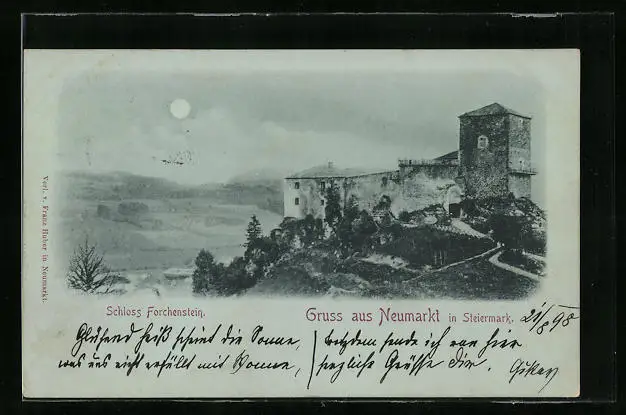 Verl. v. Franz Huber in Neumarkt.
Schloss Forchenstein.
Gruss aus Neumarkt in Steiermark.
21/8 98
Glühend heiß scheint die Sonne,
was uns nicht erfüllt mit Wonne,
trotzdem sende ich von hier
herzliche Grüße dir.